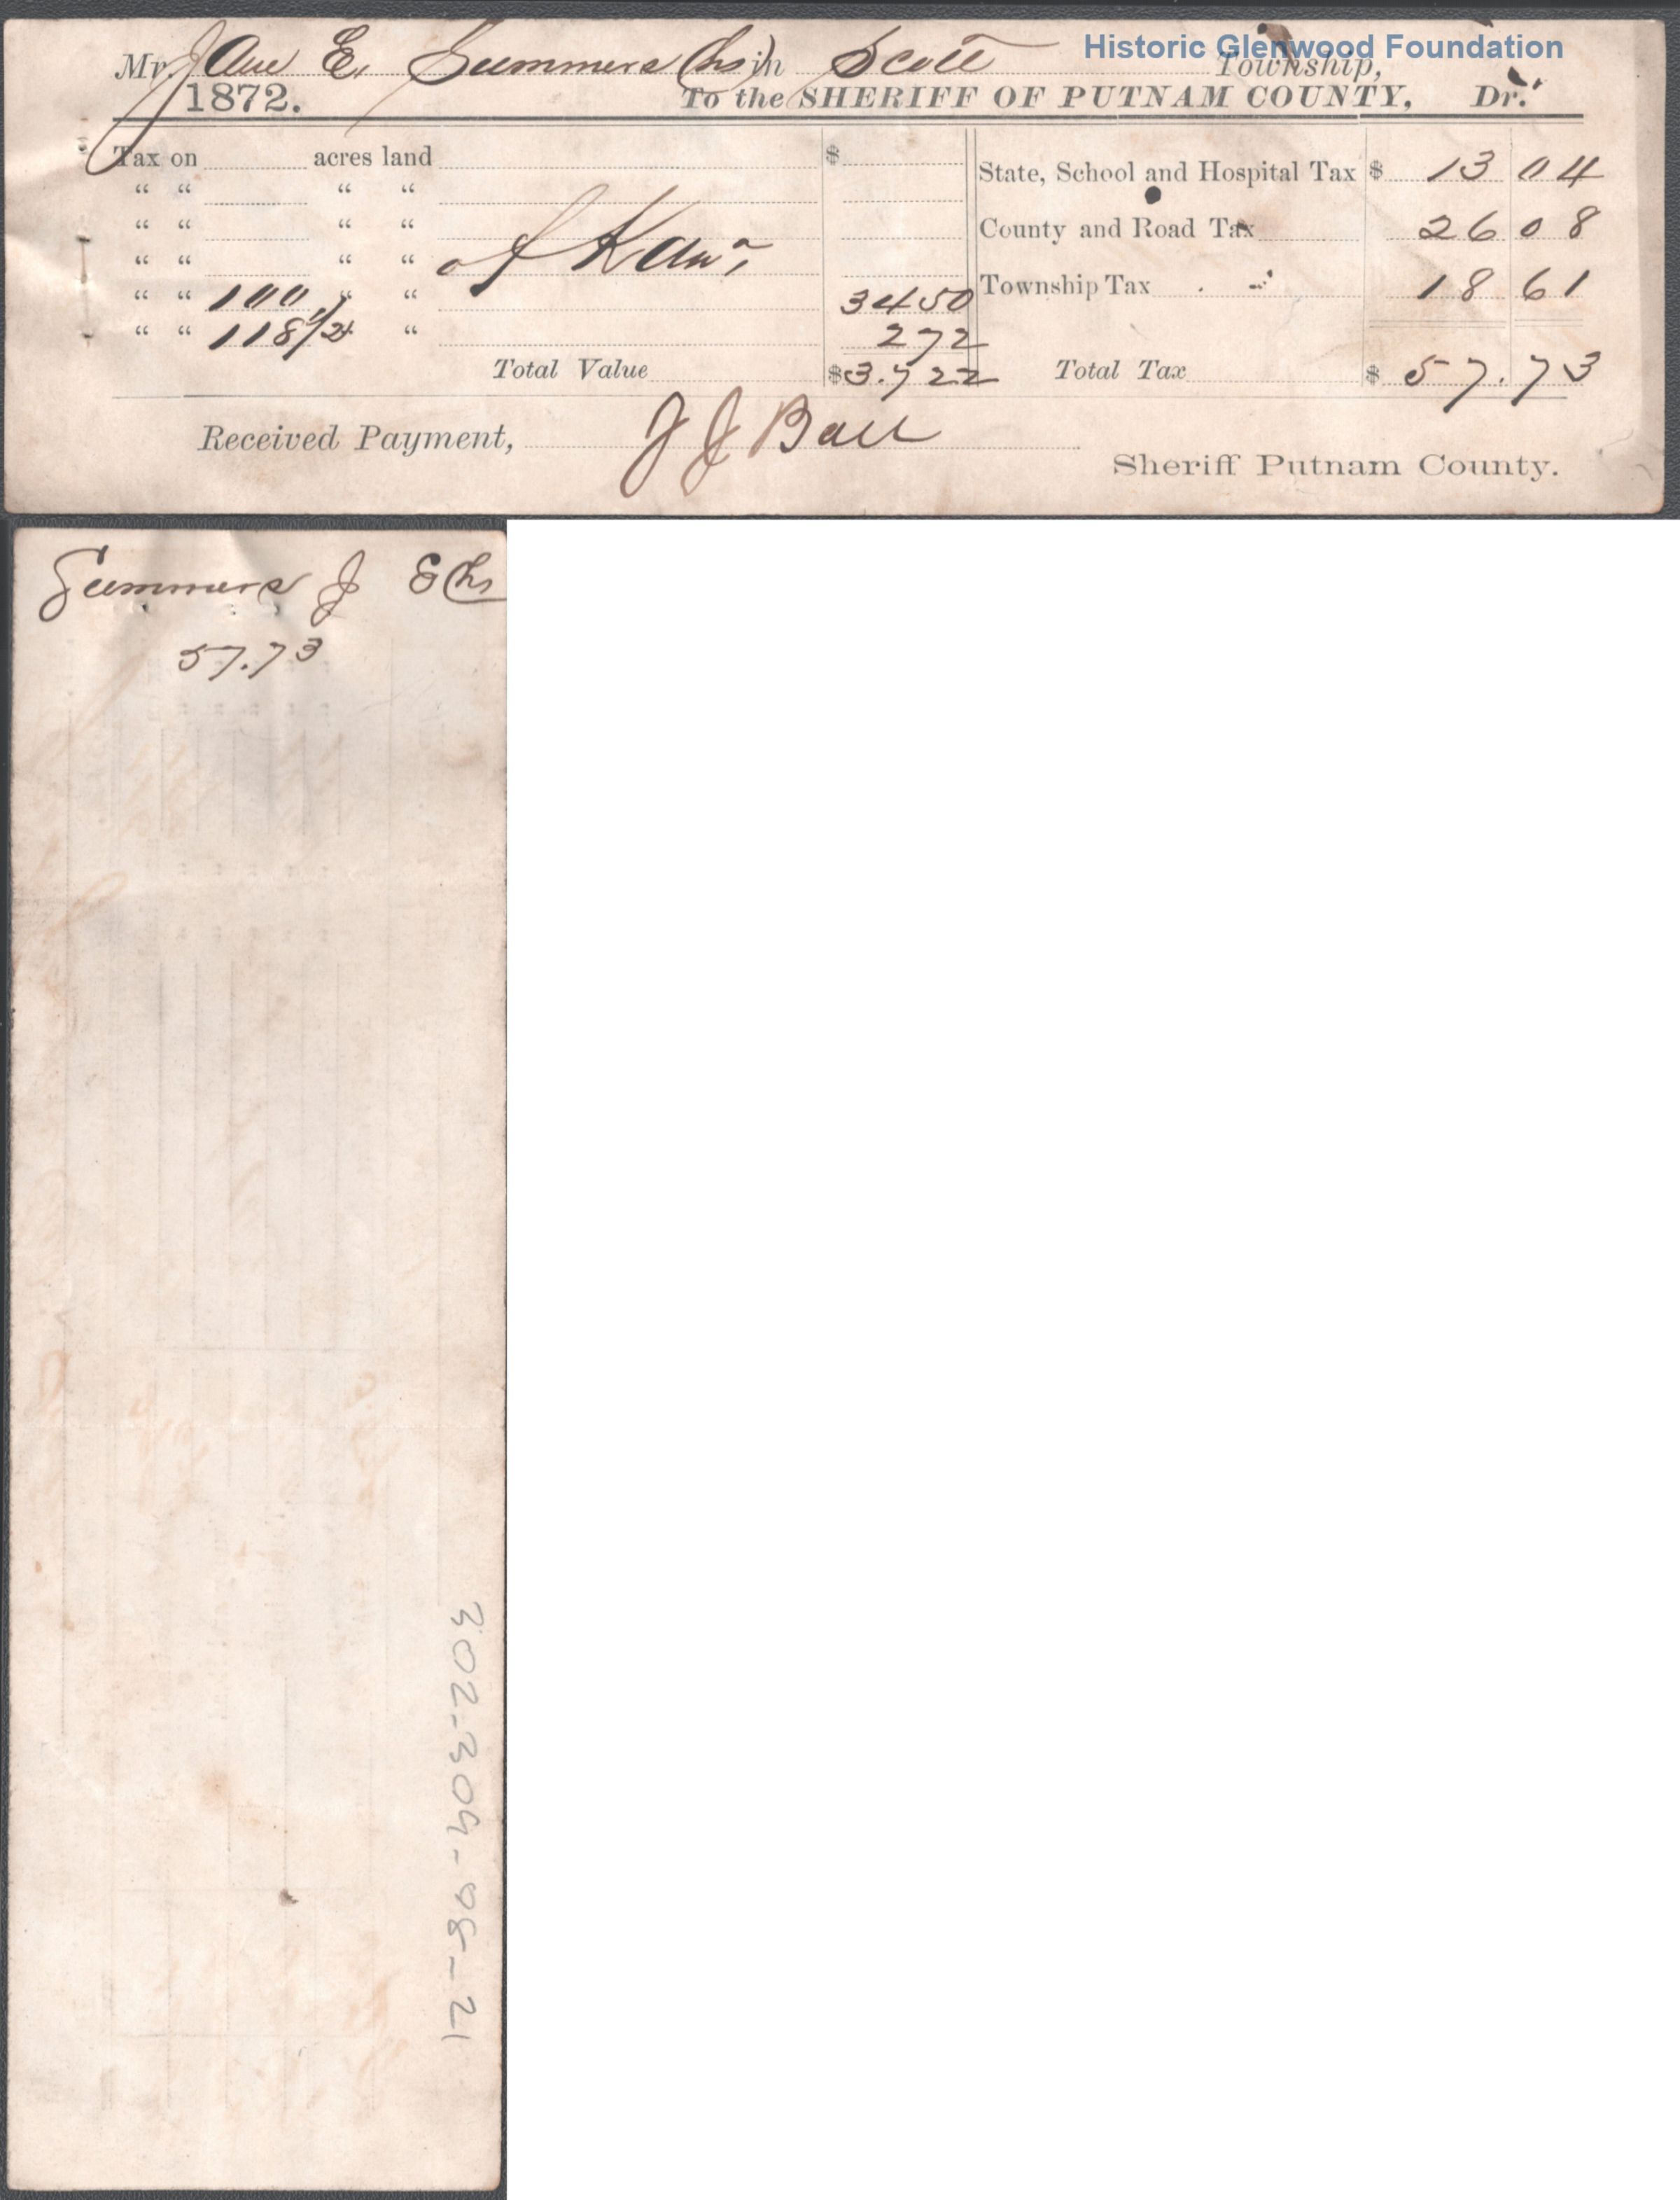 Historic Glenwood Foundation
Mr. Jane E. Summers (hs) in Scott Township,
1872. To the SHERIFF OF PUTNAM COUNTY, Dr.
Tax on acres land $
“ “ “ “
“ “ “ “
“ “ “ “ of Kanª
“ “ 100 “ “ 3450
“ “ 118 1/2 “ “ 272
Total Value $3.722
State, School and Hospital Tax $ 13 04
County and Road Tax 26 08
Township Tax 18 61
Total Tax $ 57.73
Received Payment, J J Ball
Sheriff Putnam County.
Summers J E hs
57.73
302-309-98-21